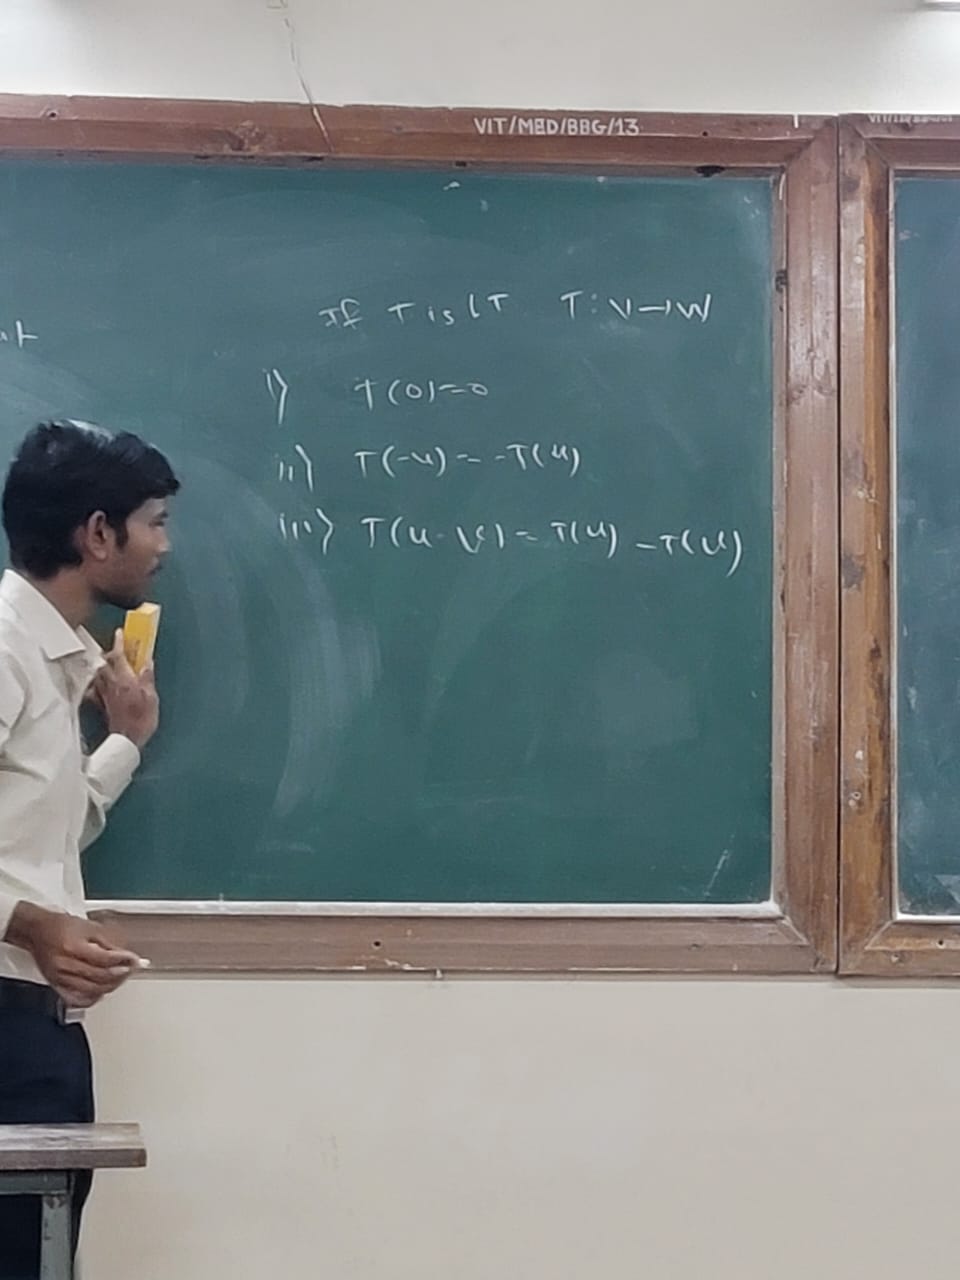 VIT/MED/BBG/13
If T is LT T: V→W
i) T(0)=0
ii) T(-u) = -T(u)
iii) T(u-v) = T(u) - T(v)